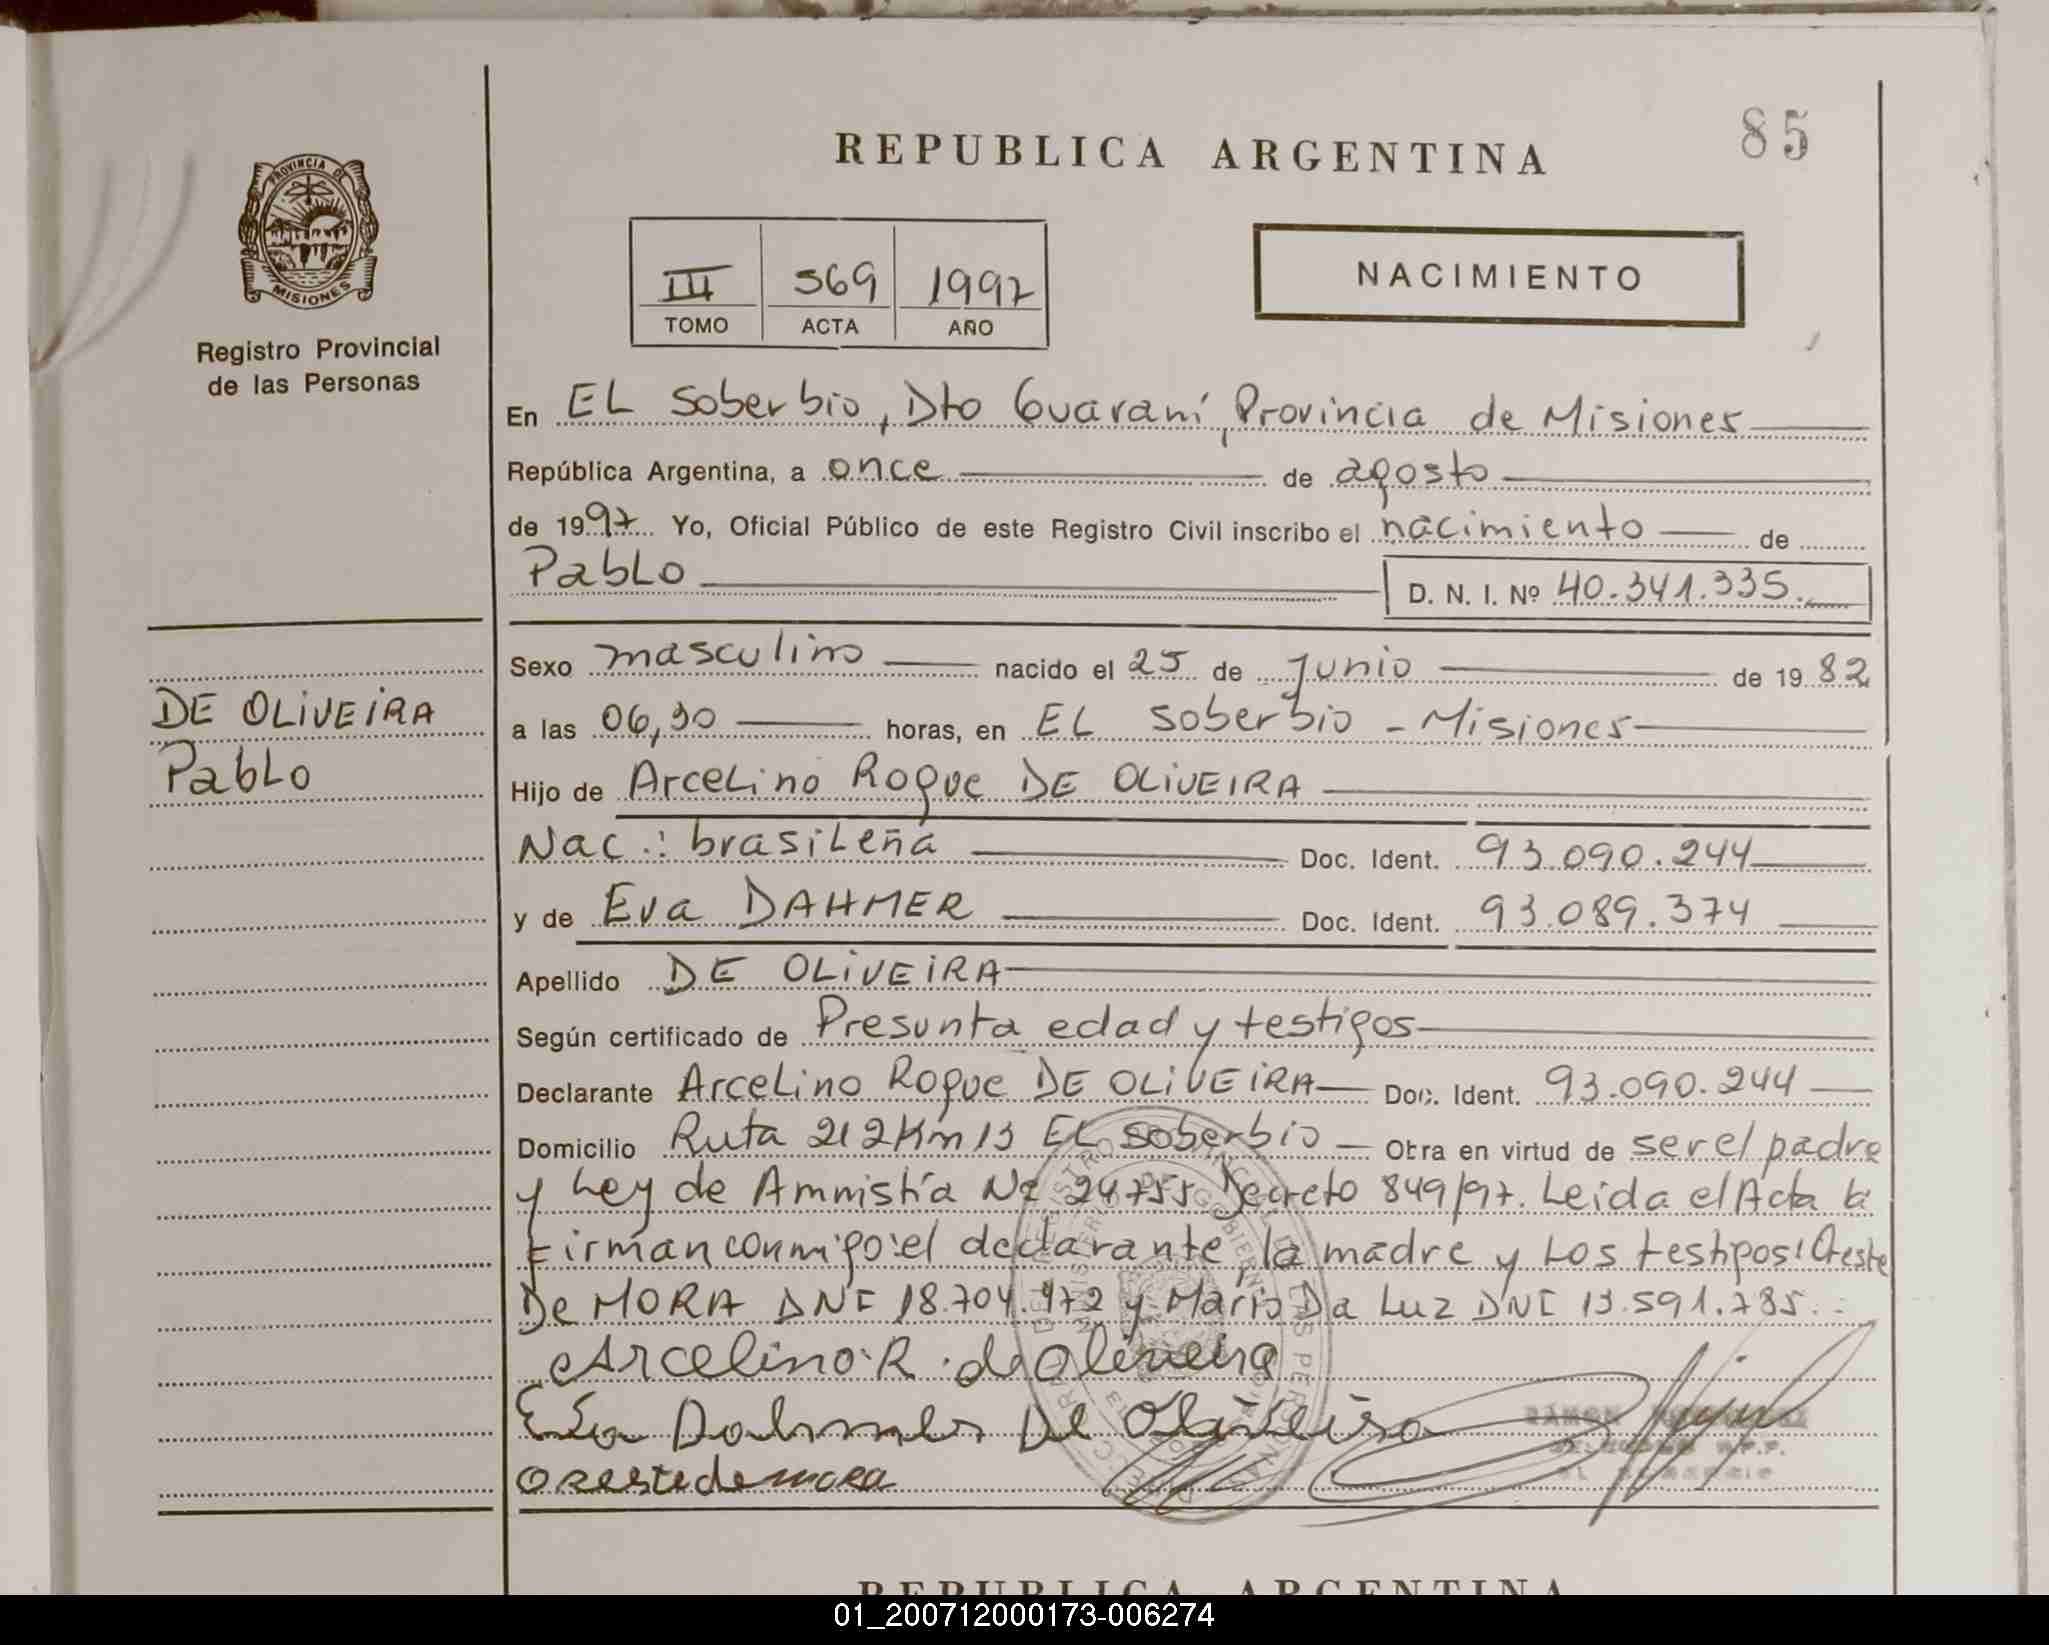 85
REPUBLICA ARGENTINA
PROVINCIA DE
MISIONES
Registro Provincial
de las Personas
III 569 1997
TOMO ACTA AÑO
NACIMIENTO
En EL Soberbio, Dto Guaraní, Provincia de Misiones
República Argentina, a once de agosto
de 1997 Yo, Oficial Público de este Registro Civil inscribo el nacimiento de
PabLo D. N. I. Nº 40.341.335.
Sexo masculino nacido el 25 de Junio de 1982
DE OLiVEiRA
PabLo
a las 06,30 horas, en EL Soberbio - Misiones
Hijo de ArceLino Roque DE OLiVEIRA
Nac.: brasiLeña Doc. Ident. 93.090.244
y de Eva DAHMER Doc. Ident. 93.089.374
Apellido DE OLiVEiRA
Según certificado de Presunta edad y testigos
Declarante ArceLino Roque DE OLiVEiRA Doc. Ident. 93.090.244
Domicilio Ruta 212 Km 13 EL Soberbio Obra en virtud de ser el padre
y Ley de Amnistía Nº 24755 Decreto 849/97. Leida el Acta la
Firman conmigo: el declarante, la madre y Los testigos: Oreste
De MORA DNI 18.704.972 y Mario Da Luz DNI 13.591.785.
Arcelino R. de Oliveira
Eva Dahmer De Oliveira
oreste de mora
REPUBLICA ARGENTINA
01_200712000173-006274